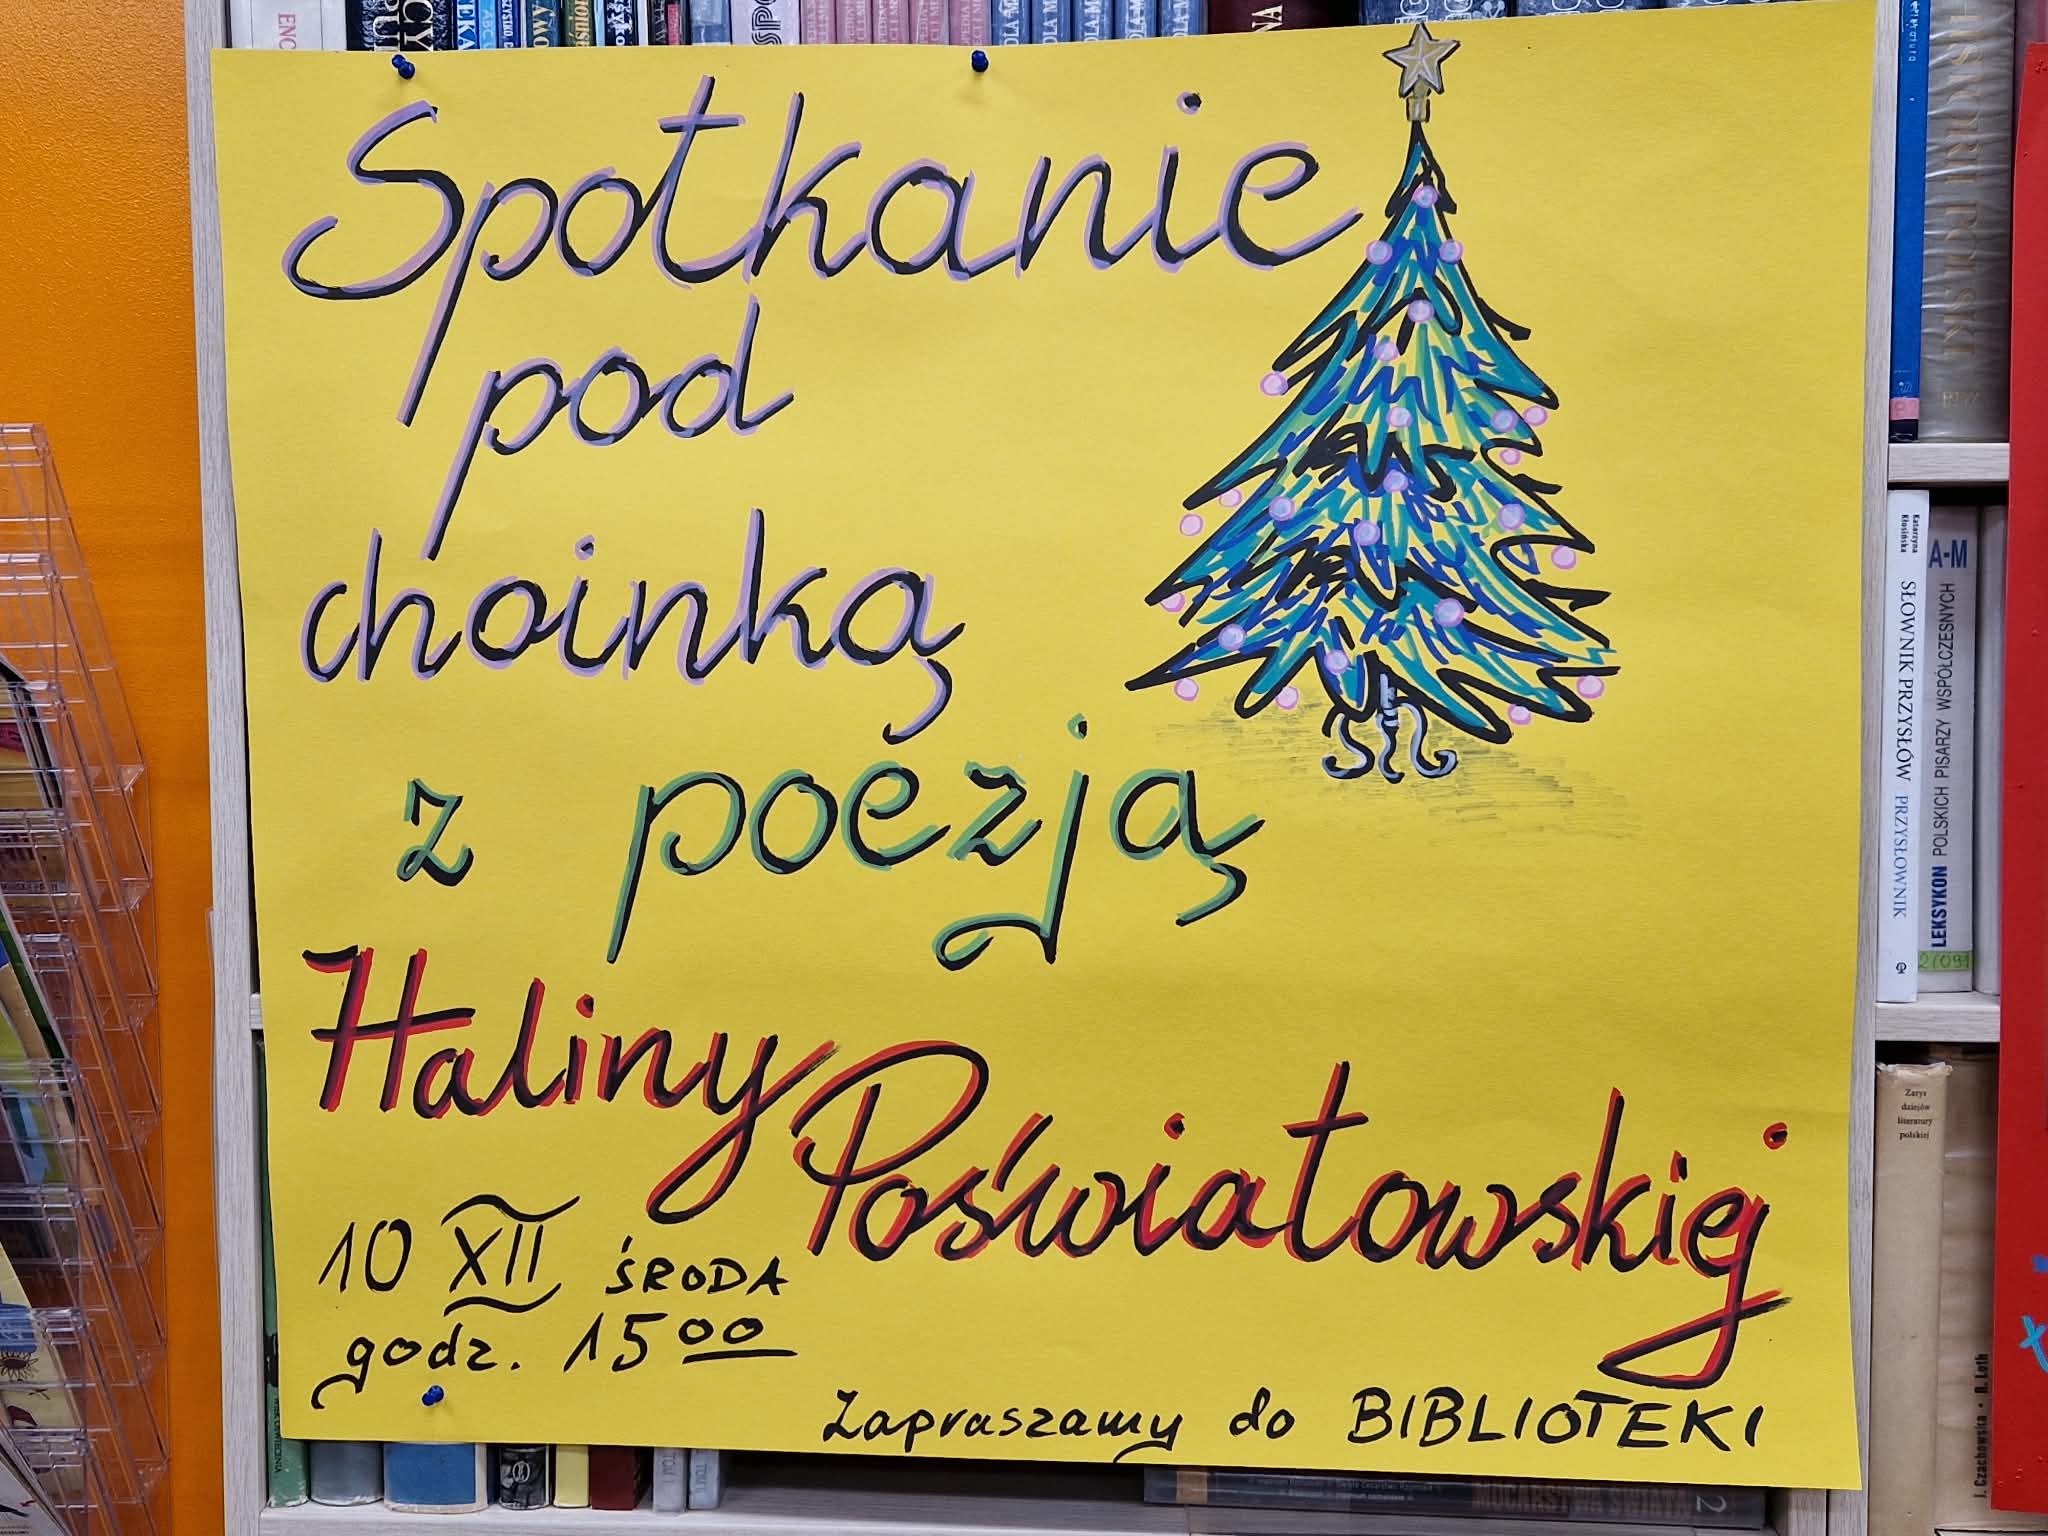 Spotkanie
pod
choinką
z poezją
Haliny
Poświatowskiej
10 XII ŚRODA
godz. 15 00
Zapraszamy do BIBLIOTEKI
Katarzyna
Kłosińska
SŁOWNIK PRZYSŁÓW PRZYSŁOWNIK
A-M
LEKSYKON POLSKICH PISARZY WSPÓŁCZESNYCH
Zarys
dziejów
literatury
polskiej
J. Czachowska • R. Loth
MOCARSTWA ŚWIATA 2
TOM I